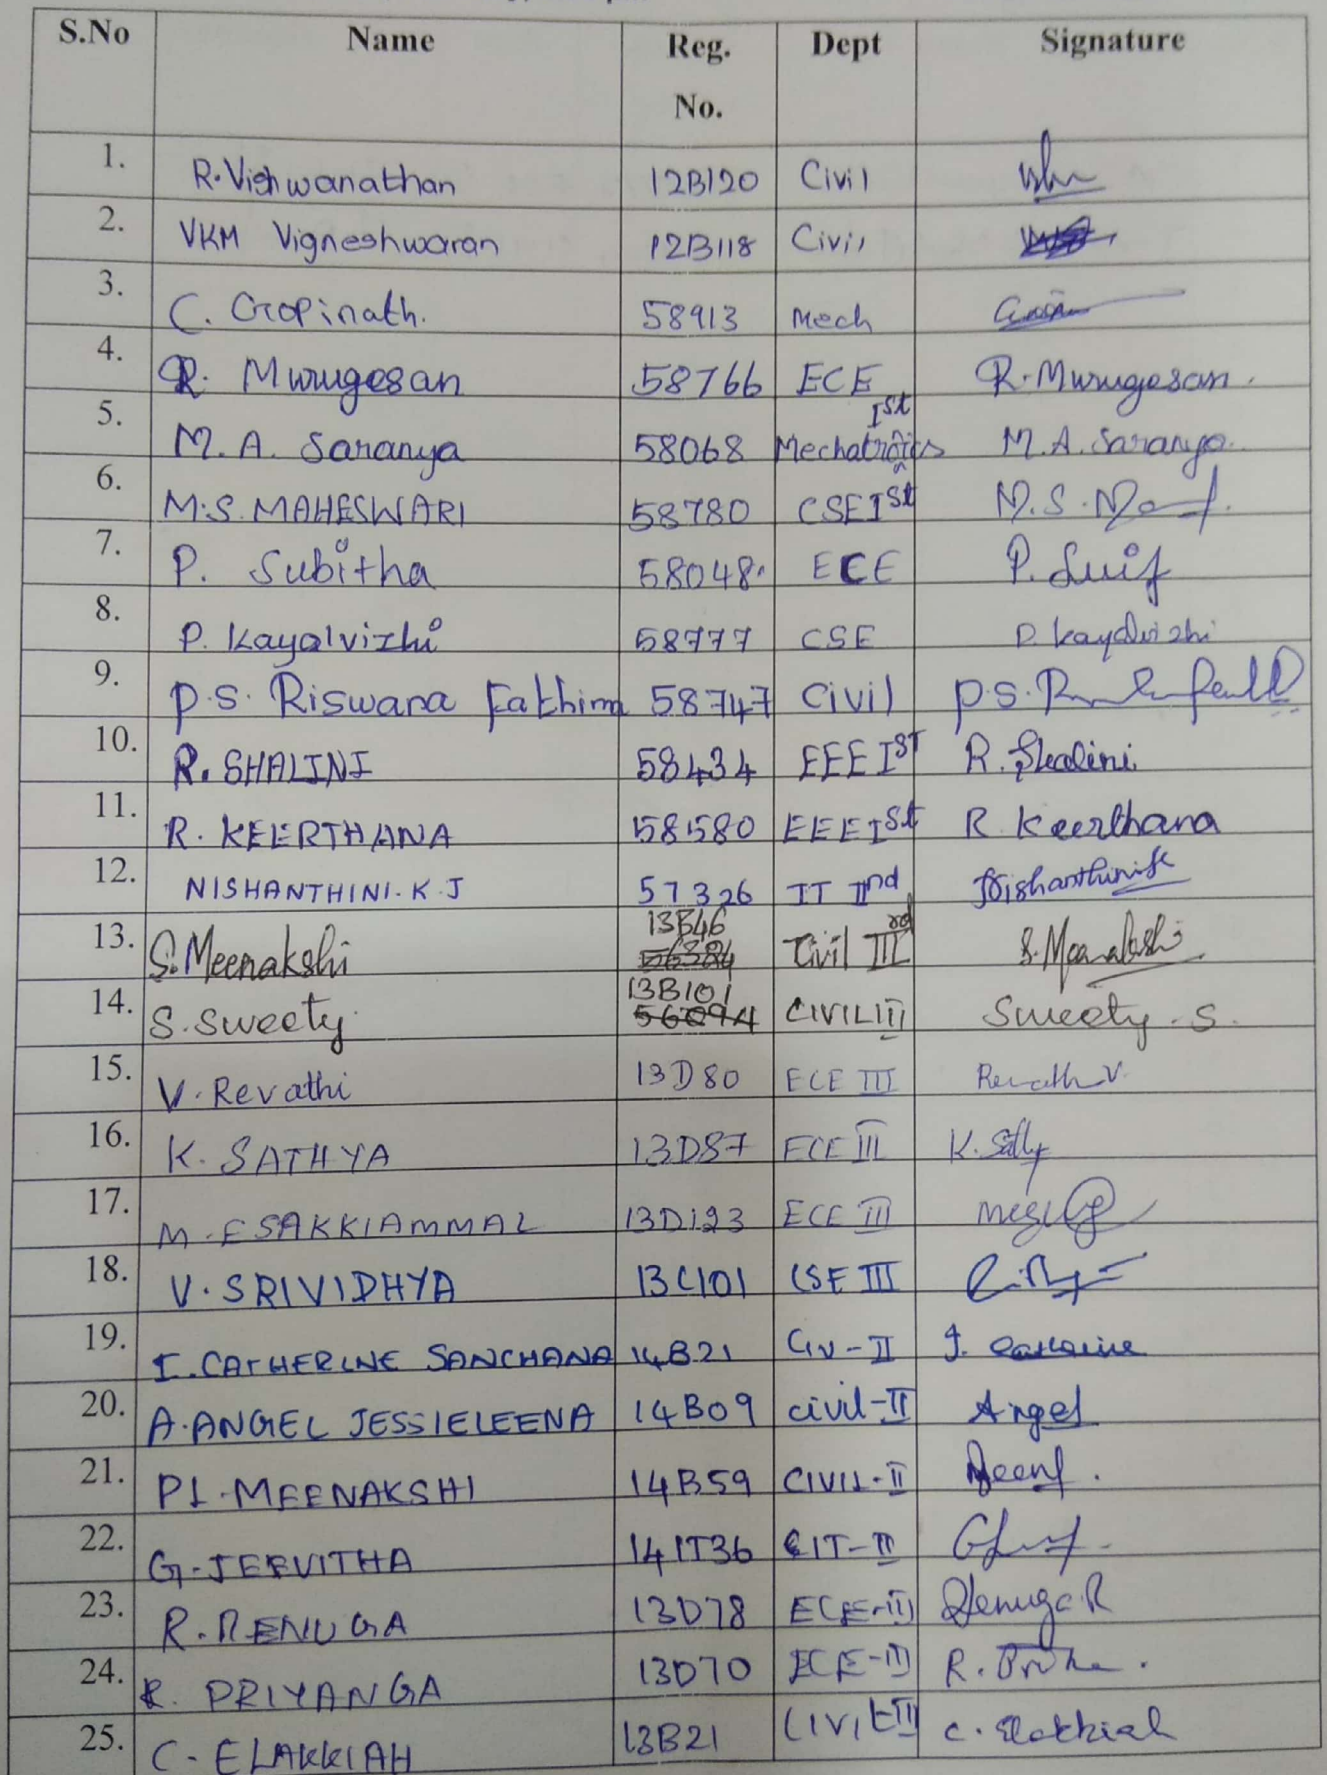 S.No Name Reg. No. Dept Signature
1. R.Vishwanathan 12B120 Civil
2. VKM Vigneshwaran 12B118 Civil
3. C. Gopinath. 58913 Mech
4. R. Murugesan 58766 ECE R.Murugesan.
5. M.A. Saranya 58068 Mechatronics Ist M.A. Saranya.
6. M.S. MAHESWARI 58780 CSE Ist M.S.
7. P. Subitha 58048 ECE P.
8. P. Kayalvizhi 58777 CSE P. kayalvizhi
9. P.S. Riswana Fathima 58747 Civil P.S.
10. R. SHALINI 58434 EEE IST R. Shalini
11. R. KEERTHANA 58580 EEE Ist R Keerthana
12. NISHANTHINI.K.J 57326 IT IInd Nishanthini
13. S.Meenakshi 13B46 56384 Civil IIIrd S.Meenakshi
14. S.Sweety 13B101 56094 CIVIL III Sweety.S.
15. V.Revathi 13D80 ECE III Revathi V.
16. K. SATHYA 13D87 ECE III K.
17. M.ESAKKIAMMAL 13D123 ECE III
18. V.SRIVIDHYA 13C101 CSE III
19. I.CATHERINE SANCHANA 14B21 Civ-II
20. A.ANGEL JESSIELEENA 14B09 civil-II Angel
21. PL.MEENAKSHI 14B59 CIVIL-II
22. G.JEEVITHA 14IT36 IT-II
23. R.RENUGA 13D78 ECE-III Renuga.R
24. R. PRIYANGA 13D70 ECE-III R.
25. C-ELAKKIAH 13B21 CIVIL III C. Elakkiah